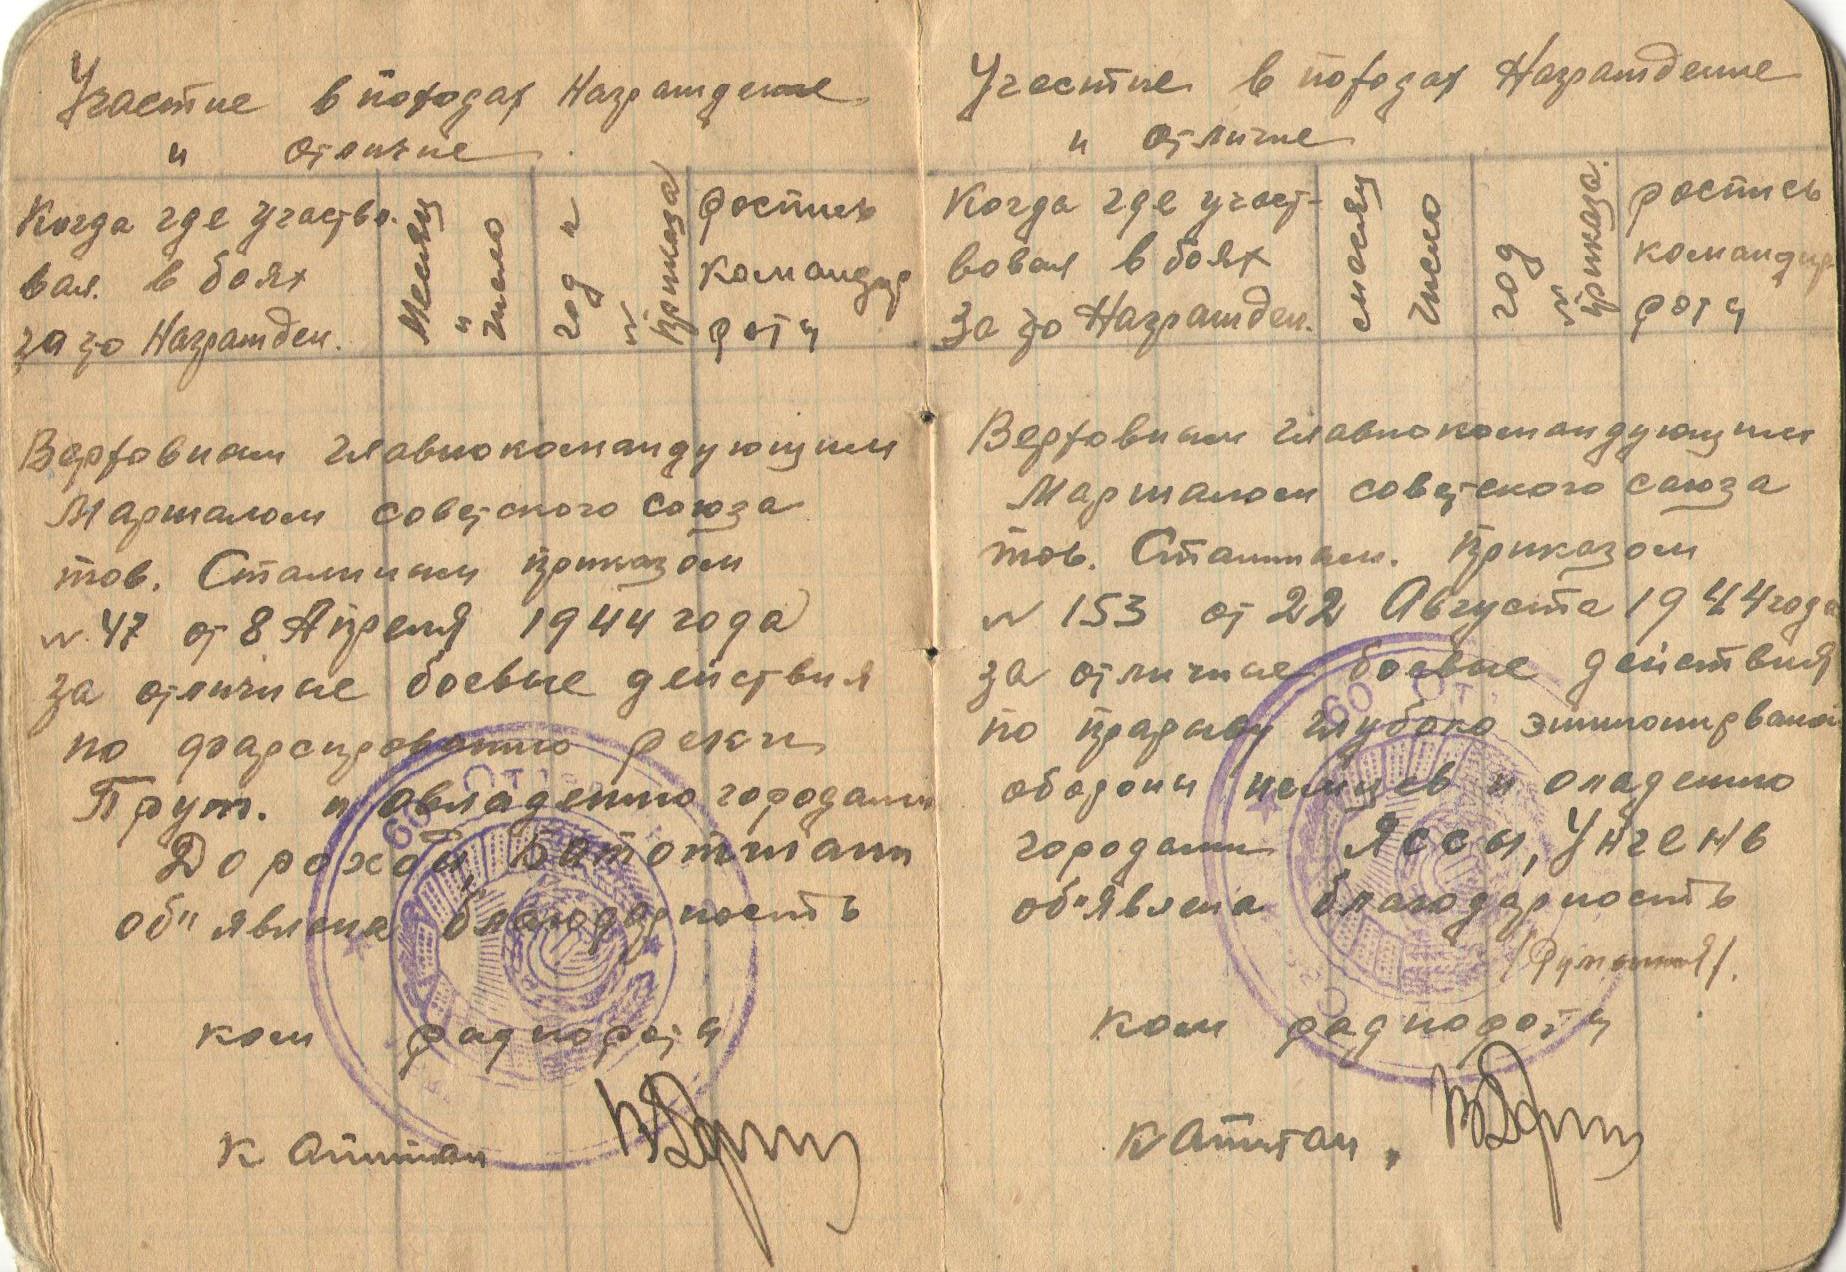 Участие в походах Награждение
и отличие
Когда где участво-
вал. в боях
за что Награжден.
Месяц
и
число
год и
№
приказа
роспись
командир
роты
Верховным главнокомандующим
Маршалом советского союза
тов. Сталиным приказом
№ 47 от 8 Апреля 1944 года
за отличные боевые действия
по форсированию реки
Прут. и овладению городами
Дорохой, Батотшани
об"явлена благодарность
ком радиороты
капитан
Участие в походах Награждение
и отличие
Когда где участ-
вовал в боях
За что Награжден.
месяц
число
год
№
приказа.
роспись
командир
роты
Верховным главнокомандующим
Маршалом советского союза
тов. Сталиным. приказом
№ 153 от 22 Августа 1944 года
за отличные боевые действия
по прорыву глубоко эшилонирваной
обороны немцев и оладению
городами Яссы, Унгень
об"явлена благодарность
/Румыния/.
ком радиороты
капитан.
60 От
60 От